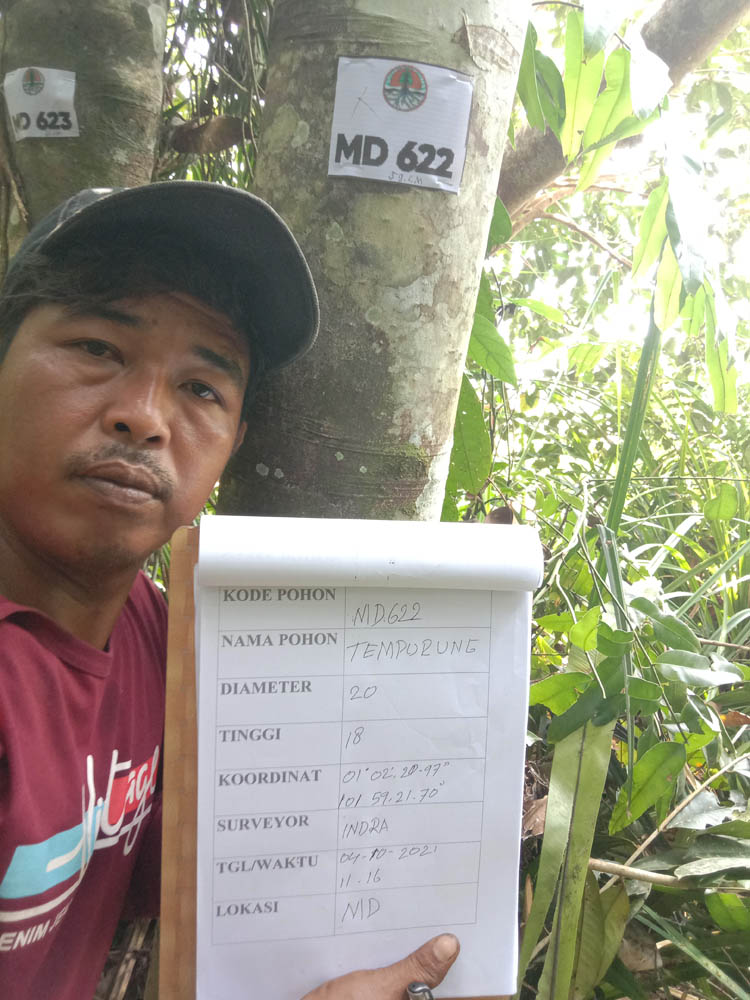 MD 623
MD 622
KODE POHON MD622
NAMA POHON TEMPURUNG
DIAMETER 20
TINGGI 18
KOORDINAT 01°02'.20.97"
101.59.21.70"
SURVEYOR INDRA
TGL/WAKTU 04-10-2021
11.16
LOKASI MD
ENIM